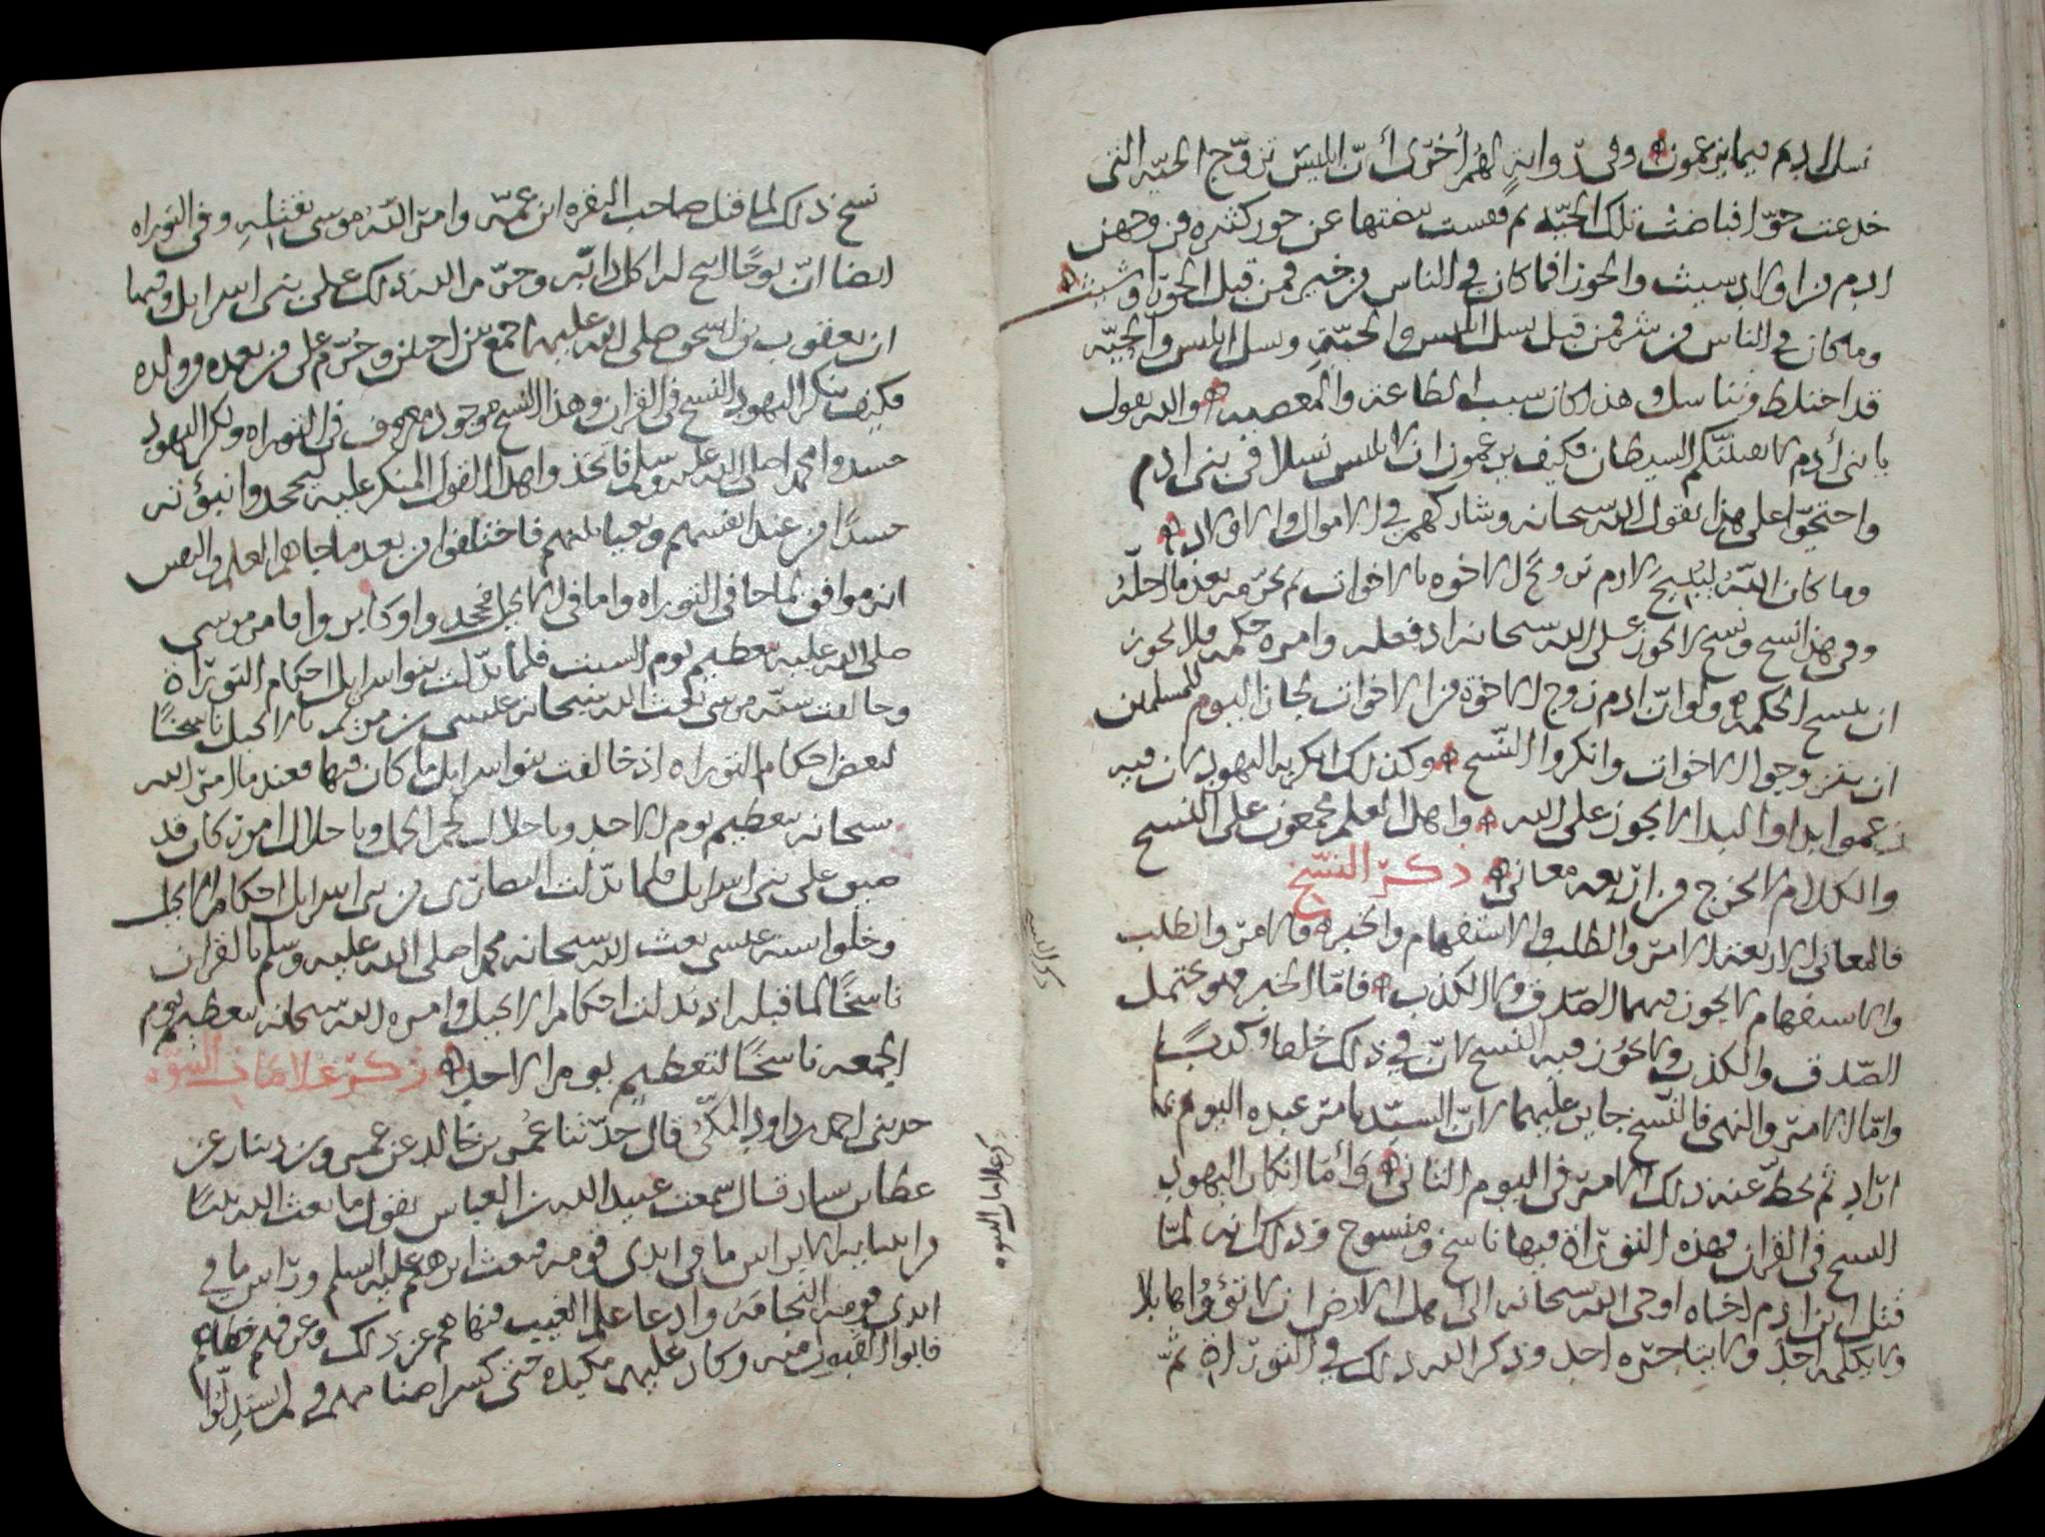 نسل ادم فيما يزعمون وفي رواية لهم أخرى أن ابليس تزوج الحيه التي
خدعت حوا فباضت تلك الحيه ثم فقست بيضتها عن حور كثيره فزوجهن
ادم من اولاد شيث والحورا فما كان في الناس من خير فمن قبل الحورا وشيث
وما كان في الناس من شر فمن قبل نسل ابليس والحية ونسل ابليس والحيه
قد اختلط وتناسل وهذا كان سبب الطاعة والمعصيه والله يقول
يا بني أدم لا يفتننكم الشيطان فكيف يزعمون ان لابليس نسلا في بني ادم
واحتجوا على هذا بقول الله سبحانه وشاركهم في الاموال والاولاد
وما كان الله ليبيح لادم تزويج الاخوه بالاخوات ثم يحرمه بعد ما احله
وفي هذا نسخ ونسخ لا يجوز على الله سبحانه اذ فعله وامره حكمه فلا يجوز
ان ينسخ الحكمه ولو ان ادم زوج الاخوة من الاخوات لجاز اليوم للمسلمين
ان يتزوجوا الاخوات وانكروا النسخ وكذلك انكرته اليهود لان فيه
زعموا بدا والبدا لا يجوز على الله واهل العلم مجمعون على النسخ
والكلام لا يخرج من اربعه معاني ذكر النسخ
فالمعاني الاربعة الامر والطلب والاستفهام والخبر فالامر والطلب
والاستفهام لا يجوز فيهما الصدق ولا الكذب فاما الخبر فهو يحتمل
الصدق والكذب ولا يجوز فيه النسخ لان في ذلك خلفا وكذبا
واما الامر والنهي فالنسخ جايز عليهما لان السيد يامر عبده اليوم بما
اراد ثم يحط عنه ذلك الامر في اليوم الثاني وأما انكار اليهود
النسخ في القران فهذه التوراة فيها ناسخ ومنسوخ وذلك انه لما
قتل ابن ادم اخاه اوحى الله سبحانه الى اهل الارض ان لا تؤوا هابلا
ولا يكلمه احد ولا يتاجره احد وذكر الله ذلك في التوراة ثم
ذكر النسخ
نسخ ذلك لما قتل صاحب البقره ابن عمه وامر الله موسى بقتله وفي التوراه
ايضا ان نوحا ابيح له اكل دابه وحرم الله ذلك على بني اسرايل وفيها
ان يعقوب بن اسحق صلى الله عليهما جمع بين اختين وحرم على من بعده من ولده
فكيف ينكر اليهود النسخ في القران وهذا النسخ موجود معروف في التوراه ولكن اليهود
حسدوا محمدا صلى الله عليه وسلم فاتخذوا هذا القول المنكر عليه ليجحدوا نبوته
حسدا من عند انفسهم وبغيا بينهم فاختلفوا من بعد ما جاهم العلم والنص
انه موافق لما جا في التوراه واما في الانجيل فجحدوا وكابروا فامر موسى
صلى الله عليه بتعظيم يوم السبت فلما بدلت بنو اسرايل احكام التوراة
وخالفت سنه موسى بعث الله سبحانه عيسى بن مريم بالانجيل ناسخا
لبعض احكام التوراه اذ خالفت بنو اسرايل ما كان فيها فعندها امر الله
سبحانه بتعظيم يوم الاحد وباحلال لحم الجمل وباحلال امور كان قد
ضيق على بني اسرايل فلما بدلت النصارى من بني اسرايل احكام الانجيل
وخلوا سنه عيسى بعث الله سبحانه محمدا صلى الله عليه وسلم بالقران
ناسخا لما قبله اذ بدلت احكام الانجيل وامره الله سبحانه بتعظيم يوم
الجمعه ناسخا لتعظيم يوم الاحد ذكر علامات النبوه
حدثني احمد بن داود المكي قال حدثنا عمر بن خالد عن عمرو بن دينار عن
عطا بن يسار قال سمعت عبيد الله بن العباس يقول ما بعث الله نبيا
من انبيايه الا براس ما في ايدي قومه فبعث ابرهيم عليه السلم وراس ما في
ايدي قومه النجامه وادعا علم الغيب فنهاهم عن ذلك
فابوا القبول منه وكاد عليهم مكيده حتى كسر اصنامهم
ذكر علامات النبوه